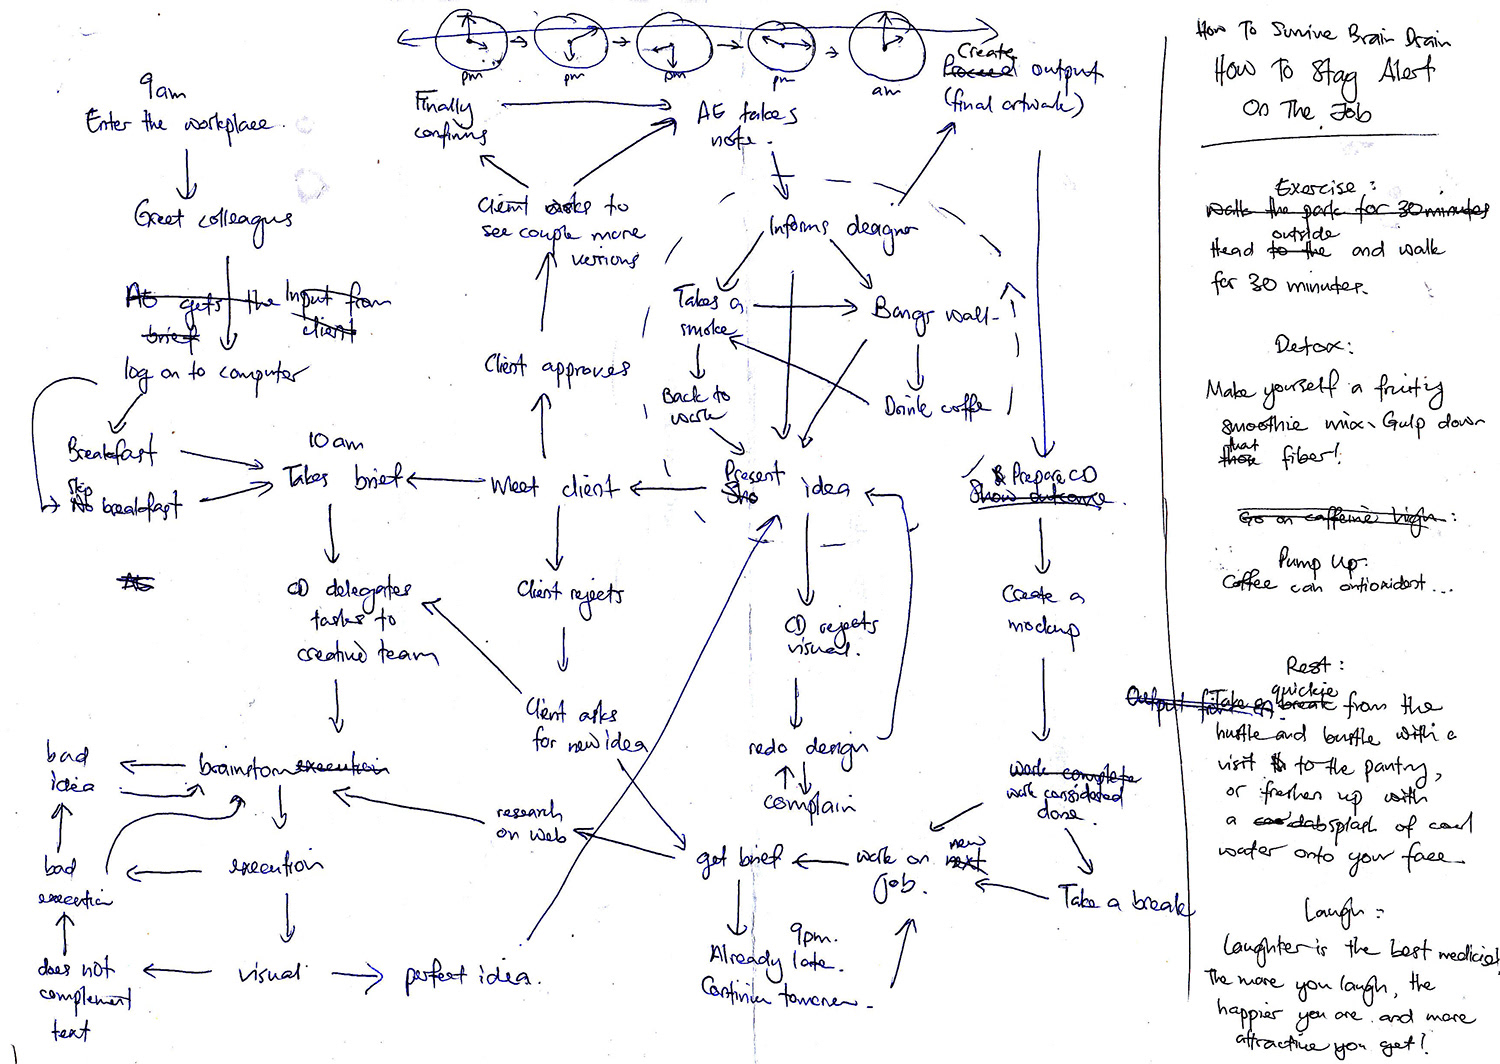 pm
pm
pm
pm
am
9am
Enter the workplace.
Greet colleagues
AE gets the Input from
brief client
log on to computer
Breakfast
skip
No breakfast
AE
10am
Takes brief
CD delegates
tasks to
creative team
brainstorm execution
bad
idea
execution
bad
execution
visual
does not
complement
text
perfect idea.
Finally
confirms
Client asks to
see couple more
versions
Client approves
Meet client
Client rejects
Client asks
for new idea
research
on web
AE takes
note.
Informs designer
Takes a
smoke
Bangs wall
Back to
work
Drink coffee
Present
Sho idea
CD rejects
visual.
redo design
complain
get brief
work on new
next
job.
9pm.
Already late.
Continue tomorrow.
Create
Proceed output
(final artwork)
& Prepare CD
Show outcome.
Create a
mockup
work complete
work considered
done.
Take a break
How To Survive Brain Drain
How To Stay Alert
On The Job
Exercise:
Walk the park for 30 minutes
outside
Head to the and walk
for 30 minutes.
Detox:
Make yourself a fruity
smoothie mix. Gulp down
that
those fiber!
Go on caffeine high:
Pump Up:
Coffee can antioxidant...
Rest:
quickie
Take a break from the
hustle and bustle with a
visit to the pantry,
or freshen up with
a splash of cool
water onto your face.
Laugh:
Laughter is the best medicine!
The more you laugh, the
happier you are and more
attractive you get!